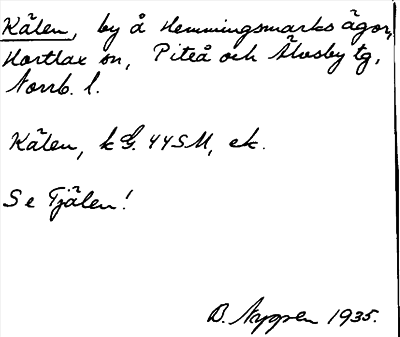 Kälen, by å Hemmingsmarks ägor,
Hortlax sn, Piteå och Älvsby tg,
Norrb. l.
Kälen, k G. 44SM, ek.
Se Tjälen!
B. Nygren 1935.